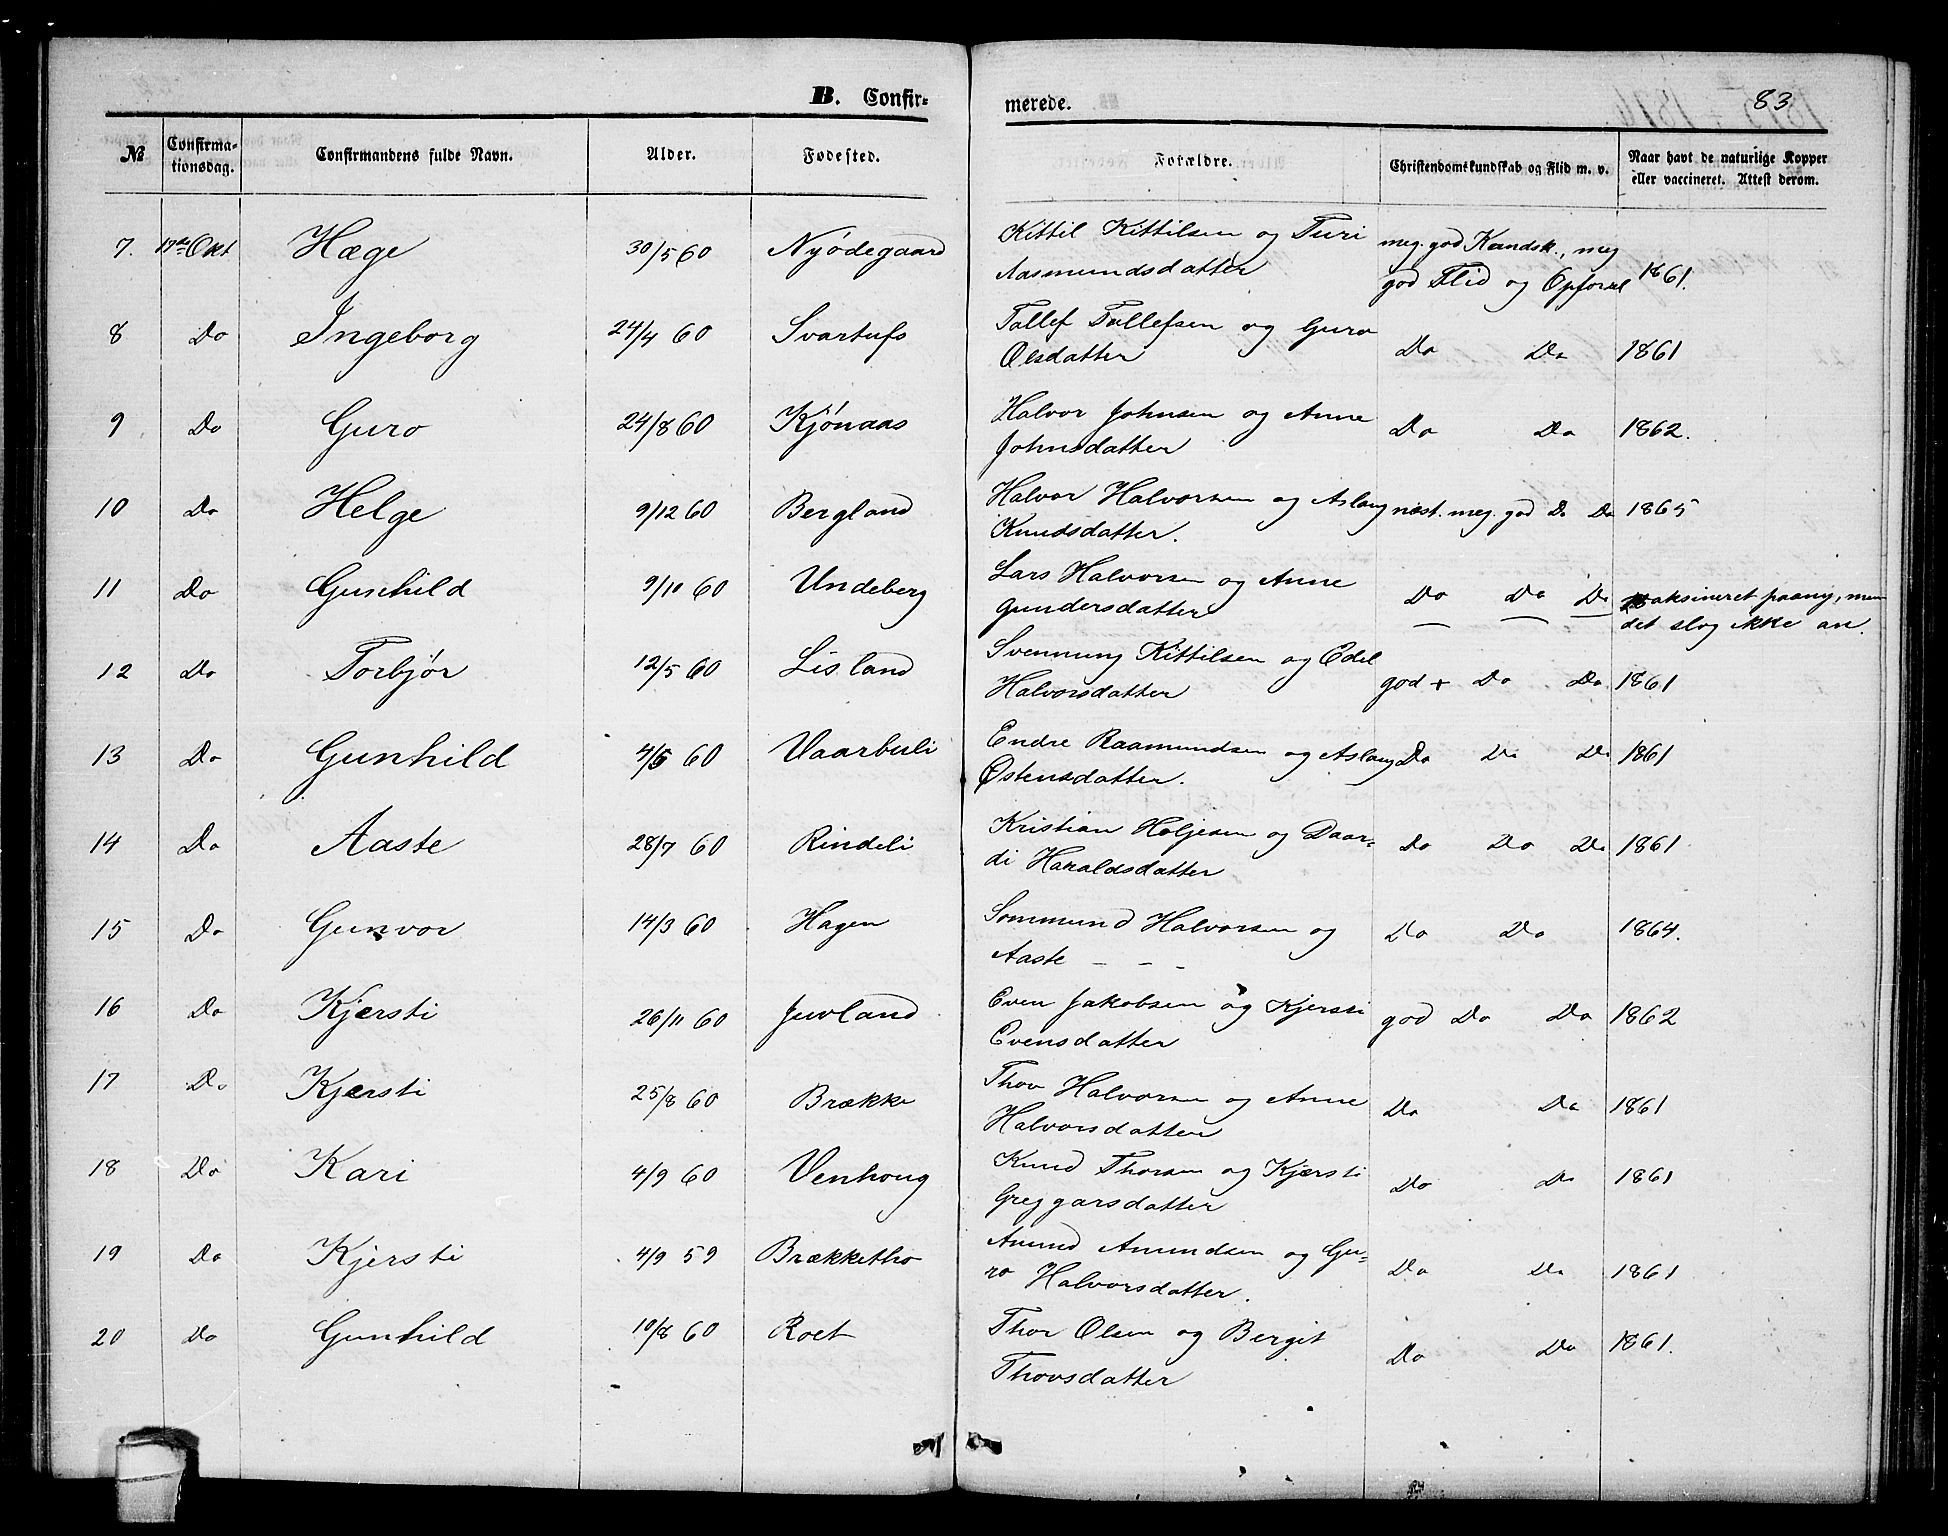 B. Confir-
merede.
83
№
Confirma-
tionsdag.
Confirmandens fulde Navn.
Alder.
Fødested.
Forældre.
Christendomskundskab og Flid m. v.
Naar havt de naturlige Kopper
eller vaccineret. Attest derom.
7. 17de Okt Hæge 30/5 60 Nyødegaard Kittil Kittilsen og Turi meg. god Kundsk., meg
Aasmundsdatter god Flid og Opførsel 1861.
8 Do Ingeborg 24/4 60 Svartufs Tallef Tallefsen og Guro
Olsdatter Do Do 1861
9 Do Guro 24/8 60 Kjónaas Halvor Johnsen og Anne
Johnsdatter Do Do 1862.
10 Do Helge 9/12 60 Bergland Halvor Halvorsen og Aslaug næst. meg. god Do Do 1865
Knudsdatter.
11 Do Gunhild 9/10 60 Undeberg Lars Halvorsen og Anne
Gundersdatter Do Do Do vaksineret paany, men
det slog ikke an.
12 Do Torbjør 12/5 60 Lisland Svennung Kittilsen og Edel
Halvorsdatter god + Do Do 1861
13 Do Gunhild 4/5 60 Vaarbuli Endre Raamundsen og Aslaug Do Do Do 1861
Østensdatter.
14 Do Aaste 28/7 60 Rindeli Kristian Høljesen og Daar-
di Haraldsdatter Do Do Do 1861
15 Do Gunvor 14/3 60 Hagen Sommund Halvorsen og
Aaste - - - Do Do 1864.
16 Do Kjersti 26/11 60 Juvland Even Jakobsen og Kjersti
Evensdatter god Do Do 1862
17 Do Kjersti 25/8 60 Brække Thov Halvorsen og Anne
Halvorsdatter Do Do 1861
18 Do Kari 4/9 60 Venhoug Knud Thorsen og Kjersti
Greggarsdatter Do Do 1861
19 Do Kjersti 4/9 59 Brækketho Amund Amundsen og Gu-
ro Halvorsdatter. Do Do 1861
20 Do Gunhild 10/8 60 Roet Thor Olsen og Bergit
Thovsdatter Do Do 1861.